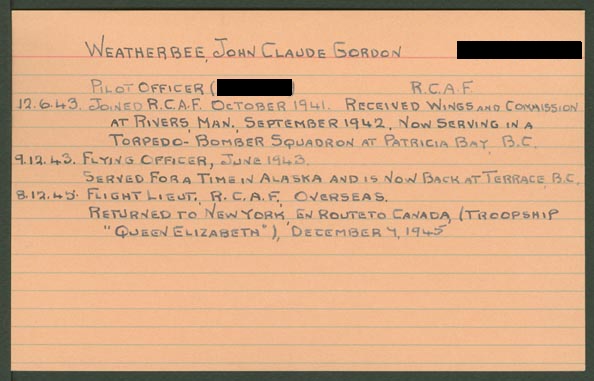 WEATHERBEE, JOHN CLAUDE GORDON
PILOT OFFICER ( ) R.C.A.F.
12.6.43. JOINED R.C.A.F. OCTOBER 1941. RECEIVED WINGS AND COMMISSION
AT RIVERS, MAN., SEPTEMBER 1942. NOW SERVING IN A
TORPEDO-BOMBER SQUADRON AT PATRICIA BAY, B.C.
9.12.43. FLYING OFFICER, JUNE 1943.
SERVED FOR A TIME IN ALASKA AND IS NOW BACK AT TERRACE, B.C.
8.12.45. FLIGHT LIEUT., R.C.A.F., OVERSEAS.
RETURNED TO NEW YORK, EN ROUTE TO CANADA, (TROOPSHIP
"QUEEN ELIZABETH"), DECEMBER 7, 1945